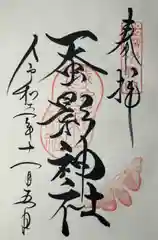 奉拝
蚕影神社
令和六年十一月五日